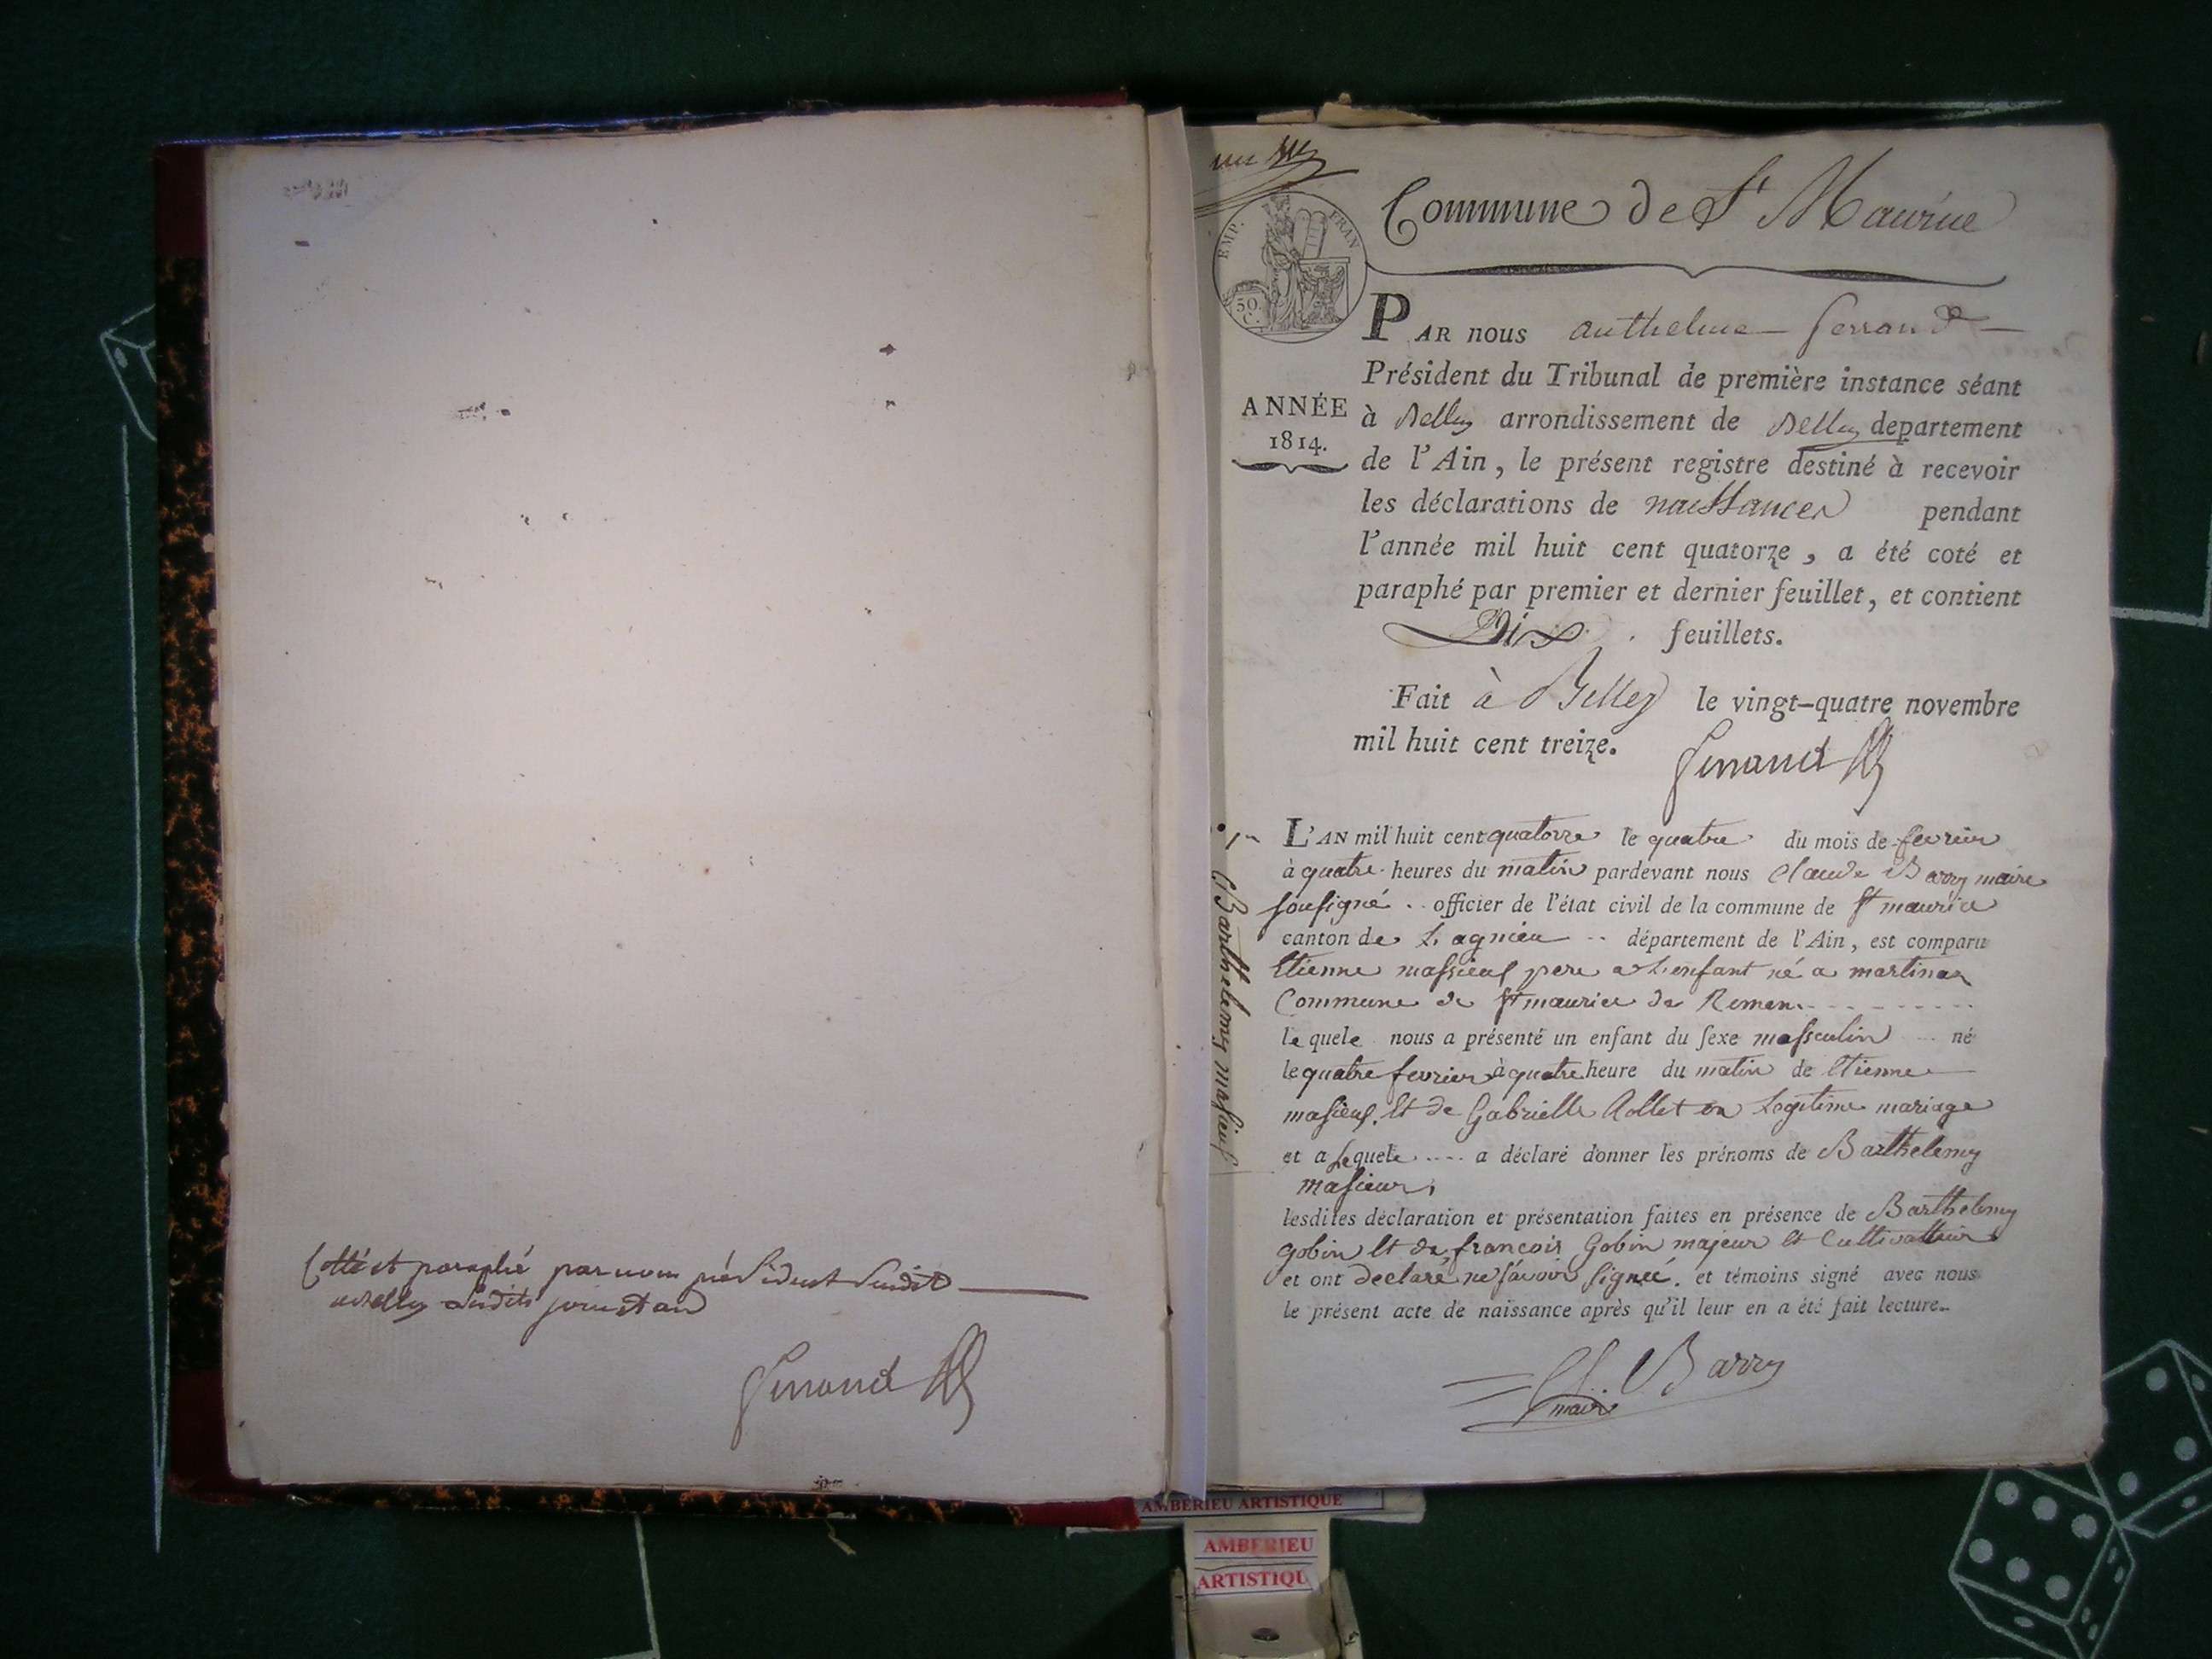 Cotté et paraphé par nous président susdit
à Belley susdits jour et an
Ferrand
EMP. FRAN
50
C.
Commune de St Maurice
PAR nous anthelme ferrand
Président du Tribunal de première instance séant
ANNÉE
1814.
à Belley arrondissement de Belley departement
de l'Ain, le présent registre destiné à recevoir
les déclarations de naissances pendant
l'année mil huit cent quatorze, a été coté et
paraphé par premier et dernier feuillet, et contient
Dix feuillets.
Fait à Belley le vingt-quatre novembre
mil huit cent treize.
Ferrand
Barthelemy masieuf
L'AN mil huit cent quatorze le quatre du mois de fevrier
à quatre heures du matin pardevant nous Claude Barry maire
sousigné officier de l'état civil de la commune de St maurice
canton de Lagnieu département de l'Ain, est comparu
Etienne massieuf pere a L'enfant né a martinaz
Commune de St maurice de Remen.
le quele nous a présenté un enfant du sexe masculin né
le quatre fevrier à quatre heure du matin de Etienne
masieuf. Et de Gabrielle Rollet en Legitime mariage
et a lequele a déclaré donner les prénoms de Barthelemy
masieur,
lesdites déclaration et présentation faites en présence de Barthelemy
gobin Et de francois Gobin majeur Et Cultivatteur
et ont declaré ne sávoir signée. et témoins signé avec nous
le présent acte de naissance après qu'il leur en a été fait lecture.
Cl. Barry
maire
AMBERIEU ARTISTIQUE
AMBERIEU
ARTISTIQU